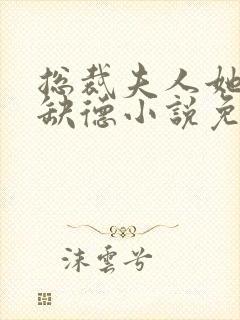 总裁夫人她
缺德小說免
沫雲兮